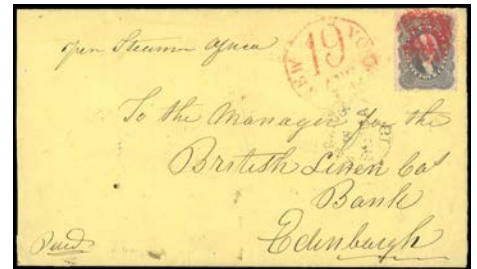 per Steamer Africa
NEW YORK
19
To the Manager for the
British Linen Cos
Bank
Edinburgh
Paid